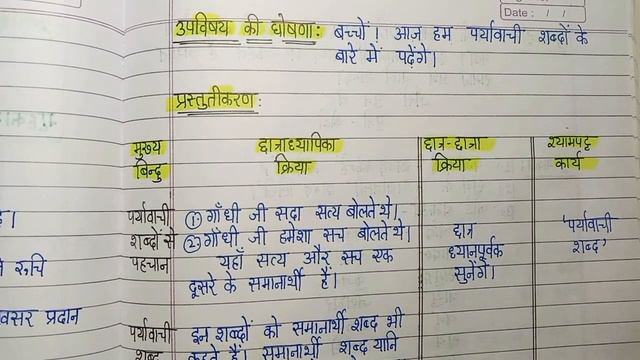 Date : / /
उपविषय की घोषणाः बच्चों! आज हम पर्यावाची शब्दों के
बारे में पढ़ेंगे।
प्रस्तुतीकरणः
मुख्य बिन्दु
छात्राध्यापिका क्रिया
छात्र-छात्रा क्रिया
श्यामपट्ट कार्य
पर्यावाची
शब्दों से
पहचान
① गाँधी जी सदा सत्य बोलते थे।
② गाँधी जी हमेशा सच बोलते थे।
यहाँ सत्य और सच एक
दूसरे के समानार्थी हैं।
छात्र
ध्यानपूर्वक
सुनेंगे।
'पर्यावाची
शब्द'
रुचि
प्रदान
पर्यावाची
शब्द
इन शब्दों को समानार्थी शब्द भी
कहते हैं। समानार्थी शब्द यानि